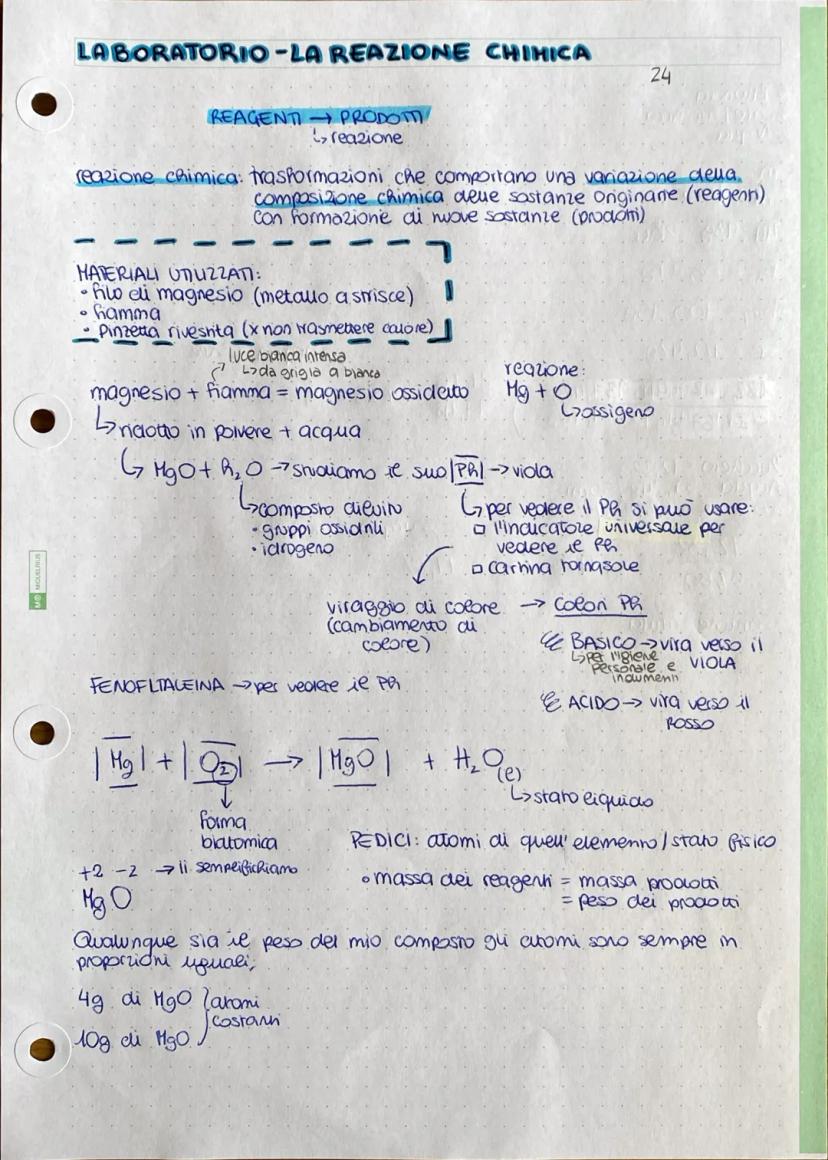 LABORATORIO - LA REAZIONE CHIMICA
24
REAGENTI → PRODOTTI
↳ reazione
reazione chimica: trasformazioni che comportano una variazione della
composizione chimica delle sostanze originarie (reagenti)
con formazione di nuove sostanze (prodotti)
MATERIALI UTILIZZATI:
• filo di magnesio (metallo a strisce)
• fiamma
• pinzetta rivestita (x non trasmettere calore)
luce bianca intensa
↳ da grigia a bianca
magnesio + fiamma = magnesio ossidato
reazione:
Mg + O
↳ ossigeno
↳ ridotto in polvere + acqua
↳ MgO + h₂O → studiamo il suo |Ph| → viola
↳ composto di/evito
• gruppi ossidrili
• idrogeno
↳ per vedere il Ph si può usare:
□ l'indicatore universale per
vedere il Ph
□ cartina tornasole
viraggio di colore → colori Ph
(cambiamento di
colore)
BASICO → vira verso il
VIOLA
↳ per l'igiene
personale e
indumenti
ACIDO → vira verso il
ROSSO
FENOFLTALEINA → per vedere il Ph
|Mg| + |O₂| → |MgO| + H₂O(l)
↳ stato liquido
forma
biatomica
PEDICI: atomi di quell'elemento / stato fisico
+2 -2 → li semplifichiamo
MgO
• massa dei reagenti = massa prodotti
= peso dei prodotti
Qualunque sia il peso del mio composto gli atomi sono sempre in
proporzioni uguali;
4g di MgO } atomi
costanti
10g di MgO
MIQUELRIUS